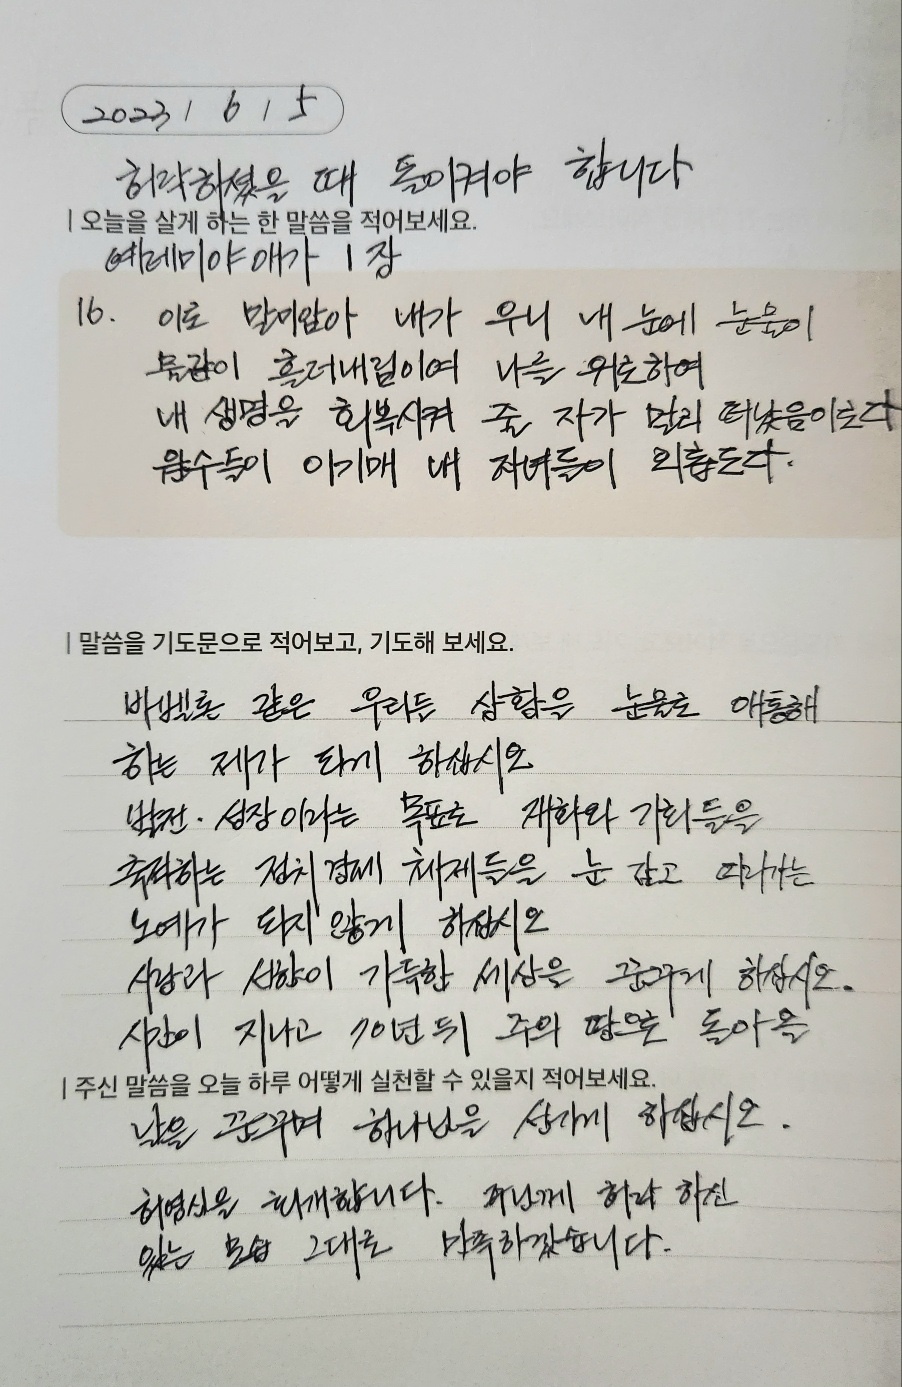 2023 / 6 / 5
허락하셨을 때 돌이켜야 합니다
| 오늘을 살게 하는 한 말씀을 적어보세요.
예레미야애가 1장
16. 이로 말미암아 내가 우니 내 눈에 눈물이
물같이 흘러내림이여 나를 위로하여
내 생명을 회복시켜 줄 자가 멀리 떠났음이로다
원수들이 이기매 내 자녀들이 외롭도다.
| 말씀을 기도문으로 적어보고, 기도해 보세요.
바벨론 같은 우리의 상황을 눈물로 애통해
하는 제가 되게 하십시오
발전·성장이라는 목표로 재화와 기회들을
축적하는 정치경제 체제들을 눈 감고 따라가는
노예가 되지 않게 하십시오
사랑과 섬김이 가득한 세상을 꿈꾸게 하십시오.
시간이 지나고 70년 뒤 주의 땅으로 돌아올
| 주신 말씀을 오늘 하루 어떻게 실천할 수 있을지 적어보세요.
날을 꿈꾸며 하나님을 섬기게 하십시오.
허영심을 회개합니다. 주님께 허락 하신
있는 모습 그대로 만족하겠습니다.